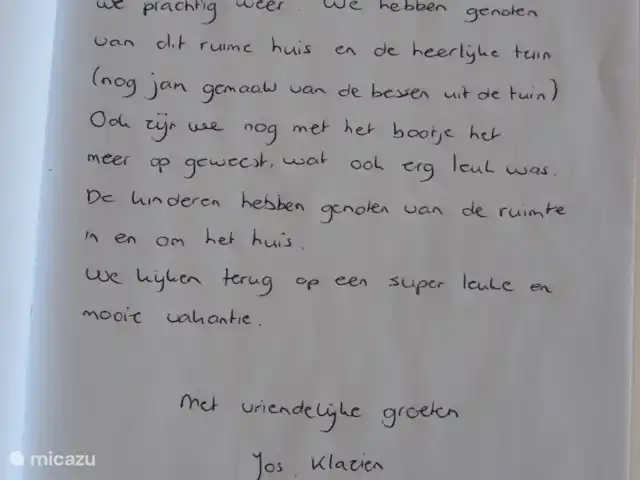 we prachtig weer. We hebben genoten
van dit ruime huis en de heerlijke tuin
(nog jam gemaakt van de bessen uit de tuin)
Ook zijn we nog met het bootje het
meer op geweest, wat ook erg leuk was.
De kinderen hebben genoten van de ruimte
in en om het huis.
We kijken terug op een super leuke en
mooie vakantie.
Met vriendelijke groeten
Jos, Klazien
micazu